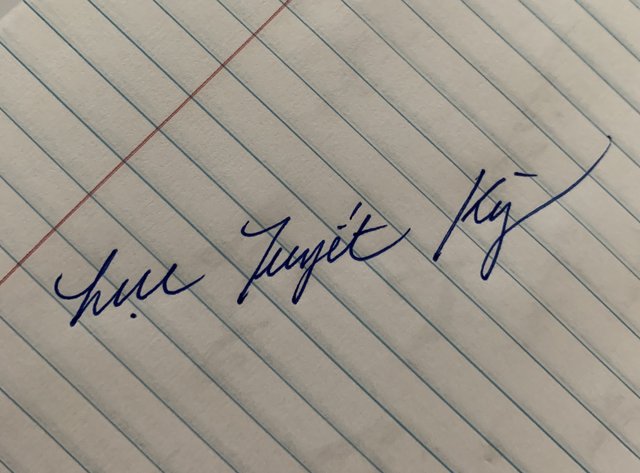 Lục Tuyết Kỳ